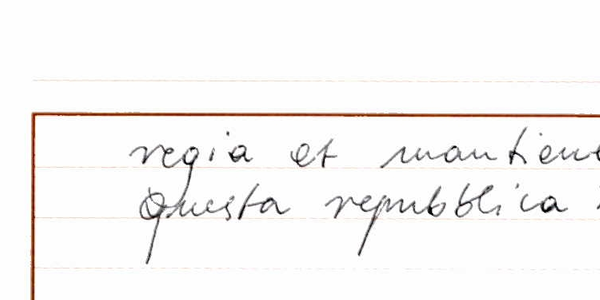 regia et mantiene
Questa repubblica